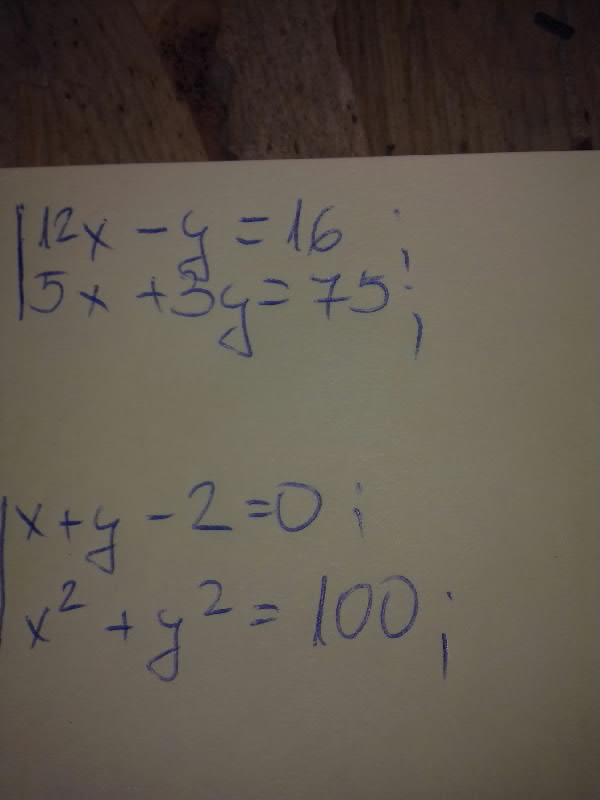 12x - y = 16 ;
5x + 3y = 75 ;
x + y - 2 = 0 ;
x² + y² = 100 ;